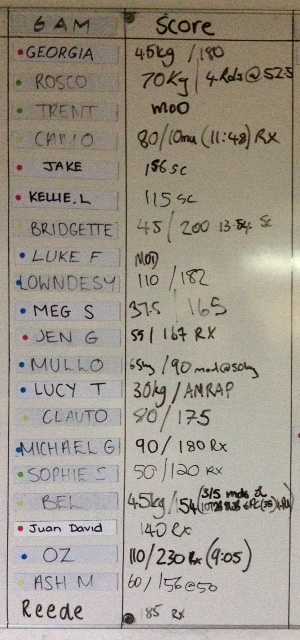 6 AM Score
GEORGIA 45kg / 180
ROSCO 70Kg / 4 Rds @ 52.5
TRENT MOD
CAMO 80/10mu (11:48) RX
JAKE 156 sc
KELLIE.L 115 sc
BRIDGETTE 45 / 200 13.54 Sc
LUKE F MOD
LOWNDESY 110 / 182
MEG S 37.5 165
JEN G 55 / 167 RX
MULLO 65kg / 90 mod@50kg
LUCY T 30kg / AMRAP
CLAUTO 80 / 175
MICHAEL G 90 / 180 Rx
SOPHIE S 50 / 120 RX
BEL 45kg / 154 (3/5 mods
Juan David 140 Rx
OZ 110/230 Rx (9:05)
ASH M 60 / 156@50
Reede 185 RX